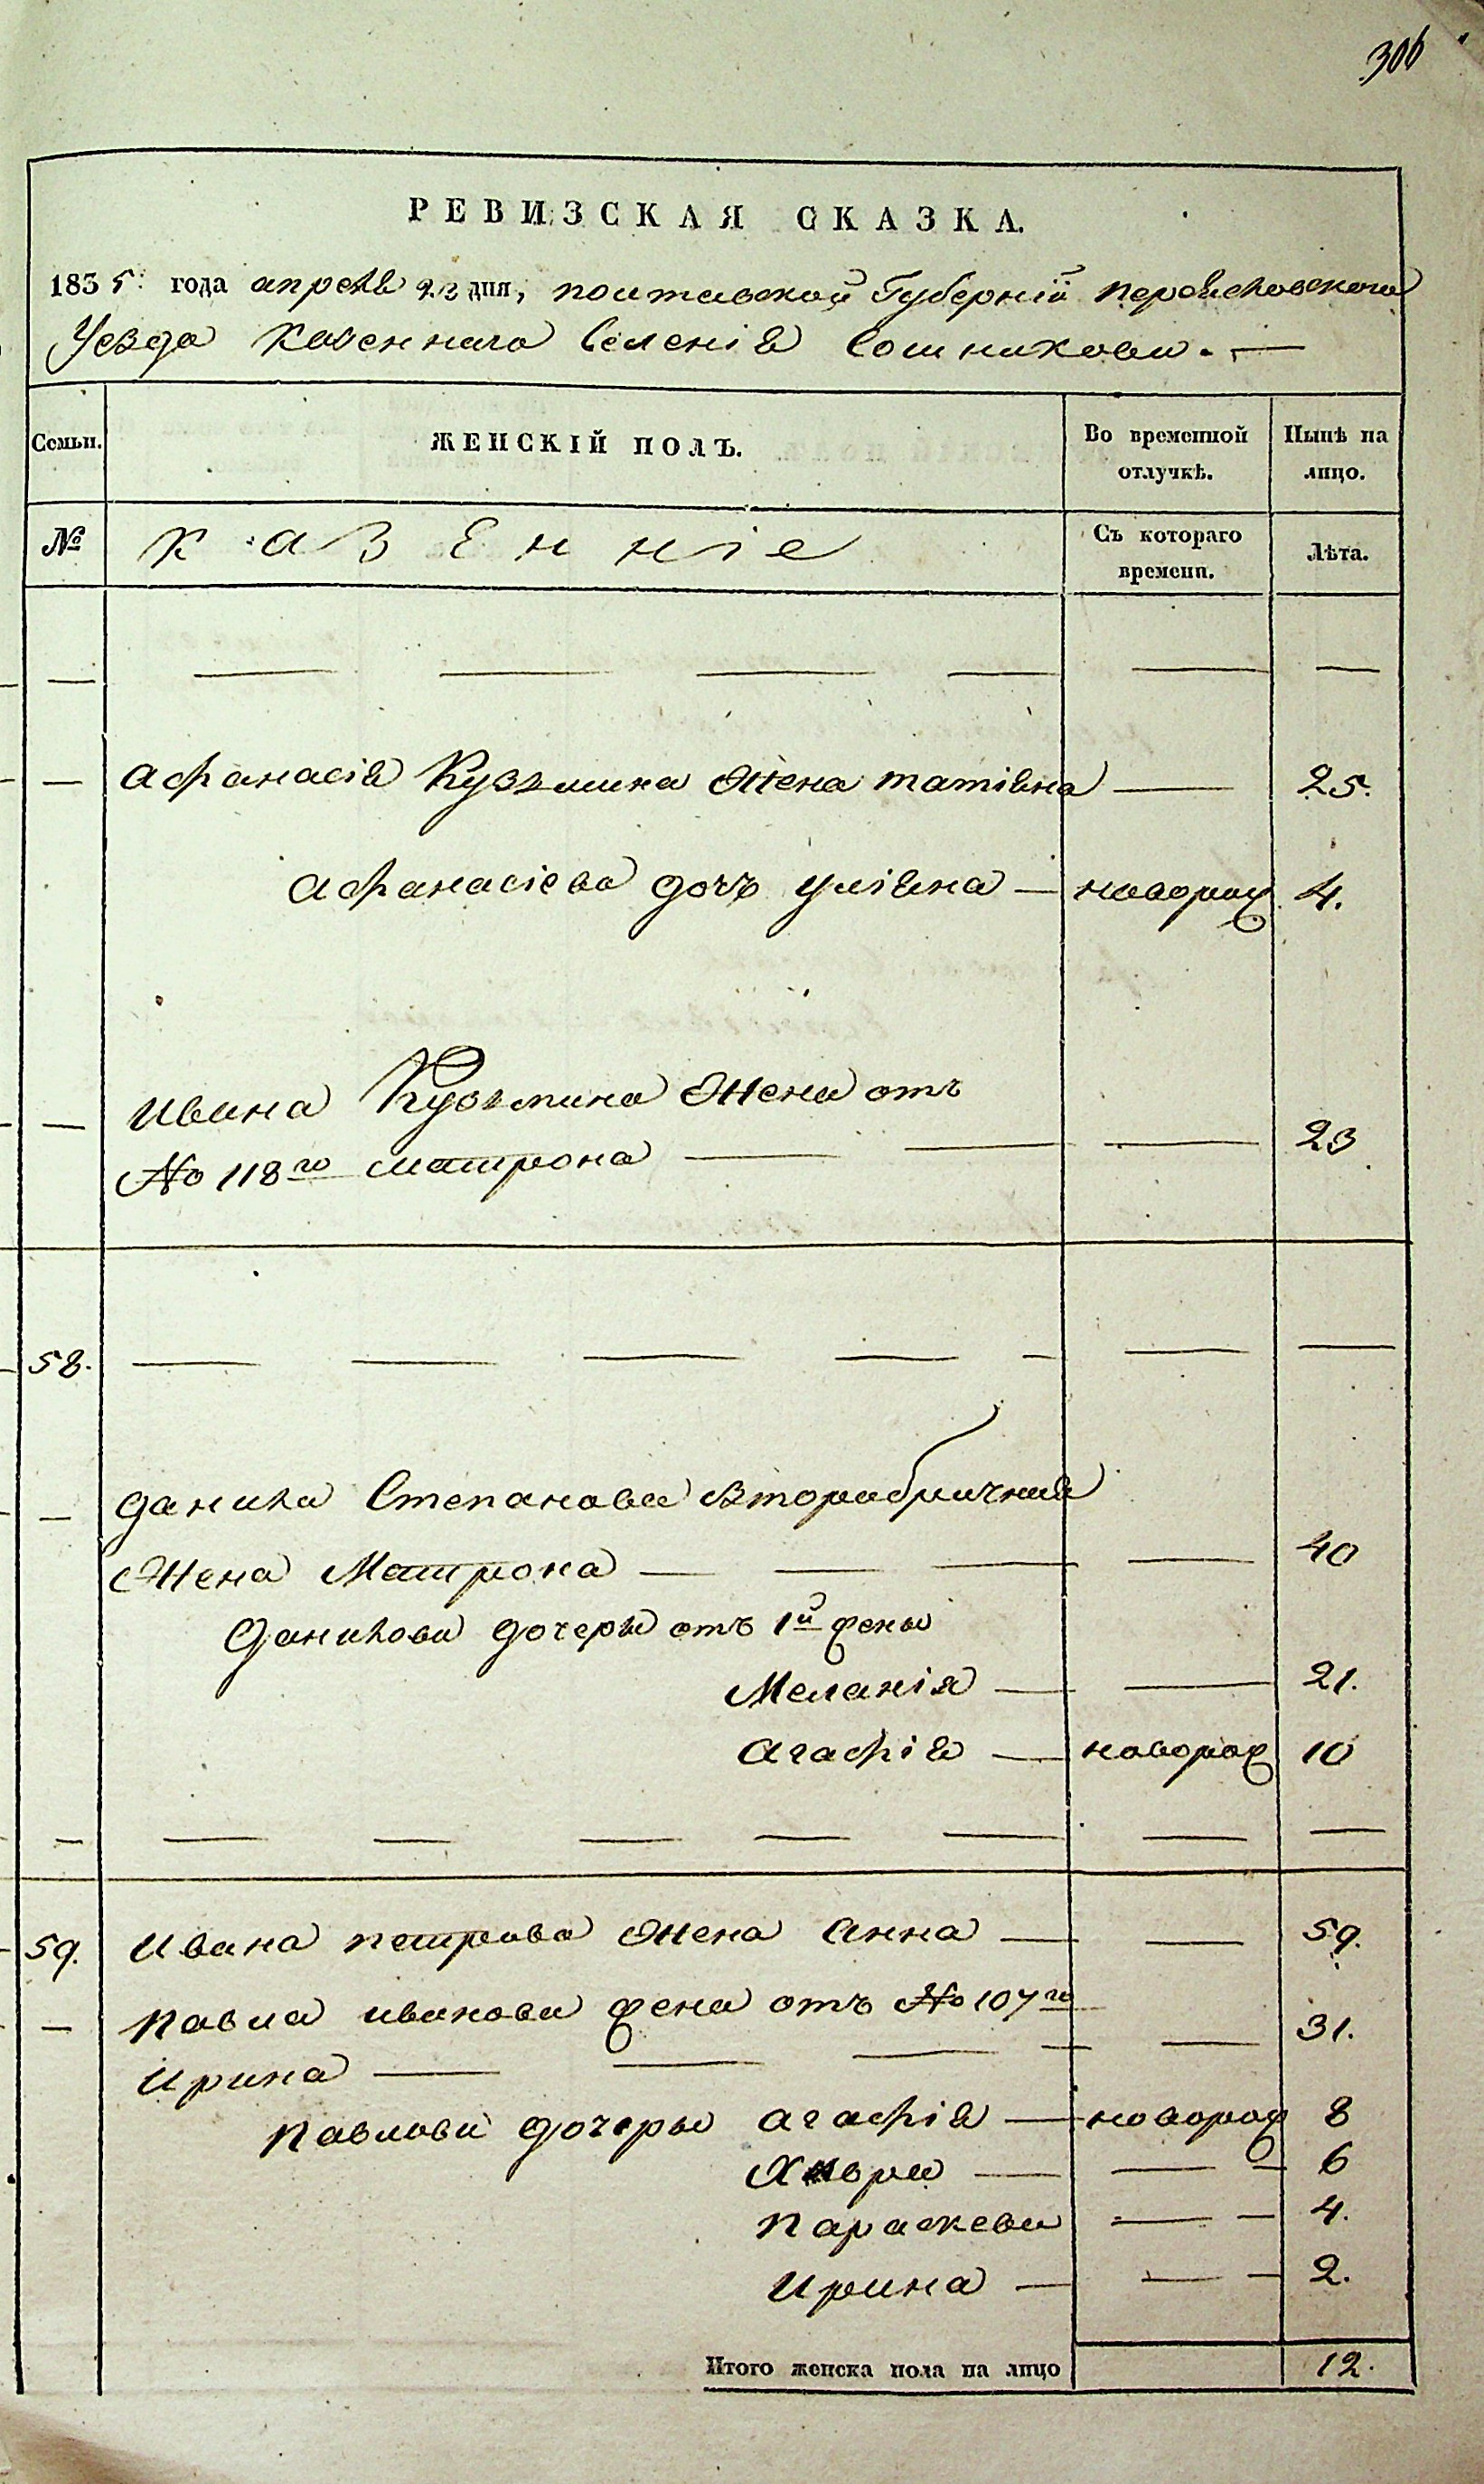 306
РЕВИЗСКАЯ СКАЗКА.
1835: года апреля 22 дня, полтавской Губерніи переясловского
Уезда Казеннаго Селенія Сошникова. —
Семьи. ЖЕНСКІЙ ПОЛЪ. Во временной отлучкѣ. Нынѣ на лицо.
№ Казенніе Съ котораго времени. Лѣта.
— — — — — — —
— Афанасія Кузьмина жена татіяна — 25.
Афанасіева дочь уліяна — новорож 4.
— Ивана Кузьмина жена отъ
No 118го матрона — — — 23
58. — — — — — — —
— данила Степанова второбрачная
жена Матрона — — — — 40
Данилова дочеры отъ 1й жены
Меланія — — 21.
Агафія — новорож 10
— — — — — — — —
59. Ивана петрова жена Анна — — 59.
— павла иванова жена отъ No 107го
Ирина — — — — — 31.
павлови дочеры агафія — новорож 8
Хивря — — — 6
параскева — — 4.
Ирина — — — 2.
Итого женска пола на лицо 12.